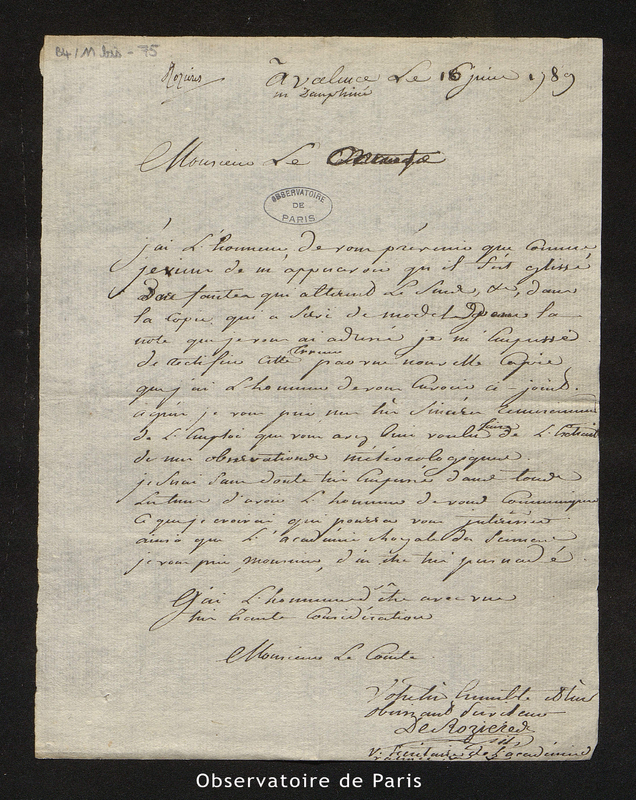 B4/M bis - 75
Rozières
à valence Le 16 juin 1789
en Dauphiné
Monsieur Le
OBSERVATOIRE
DE
PARIS
j'ai L'honneur de vous prévenir que Comme
je viens de m'appercevoir qu'il s'est glissé
Des fautes qui alterent Le Sens, &a, dans
la Copie qui a Servi de model pour la
note que je vous ai adressé je m'empresse
de rectifier cette Erreur par une nouvelle Copie
que j'ai L'honneur de vous Envoier ci-joint.
je vous prie mes très Sincères remerciemens
de L'Emploi que vous avez bien voulu faire de L'Extrait
de mes observations météorologiques.
je serai Sans doute très Empressé dans toutes
d'avoir L'honneur de vous Communiquer
Ce que je croirai qui pourra vous intéresser
ainsi que L'académie Royale des Sciences
je vous prie, monsieur, d'en être très persuadé.
J'ai L'honneur d'être avec une
très haute Considération
Monsieur Le Comte
Votre très humble et très
obéissant Serviteur
De Rozieres
Secrétaire de L'académie
Observatoire de Paris